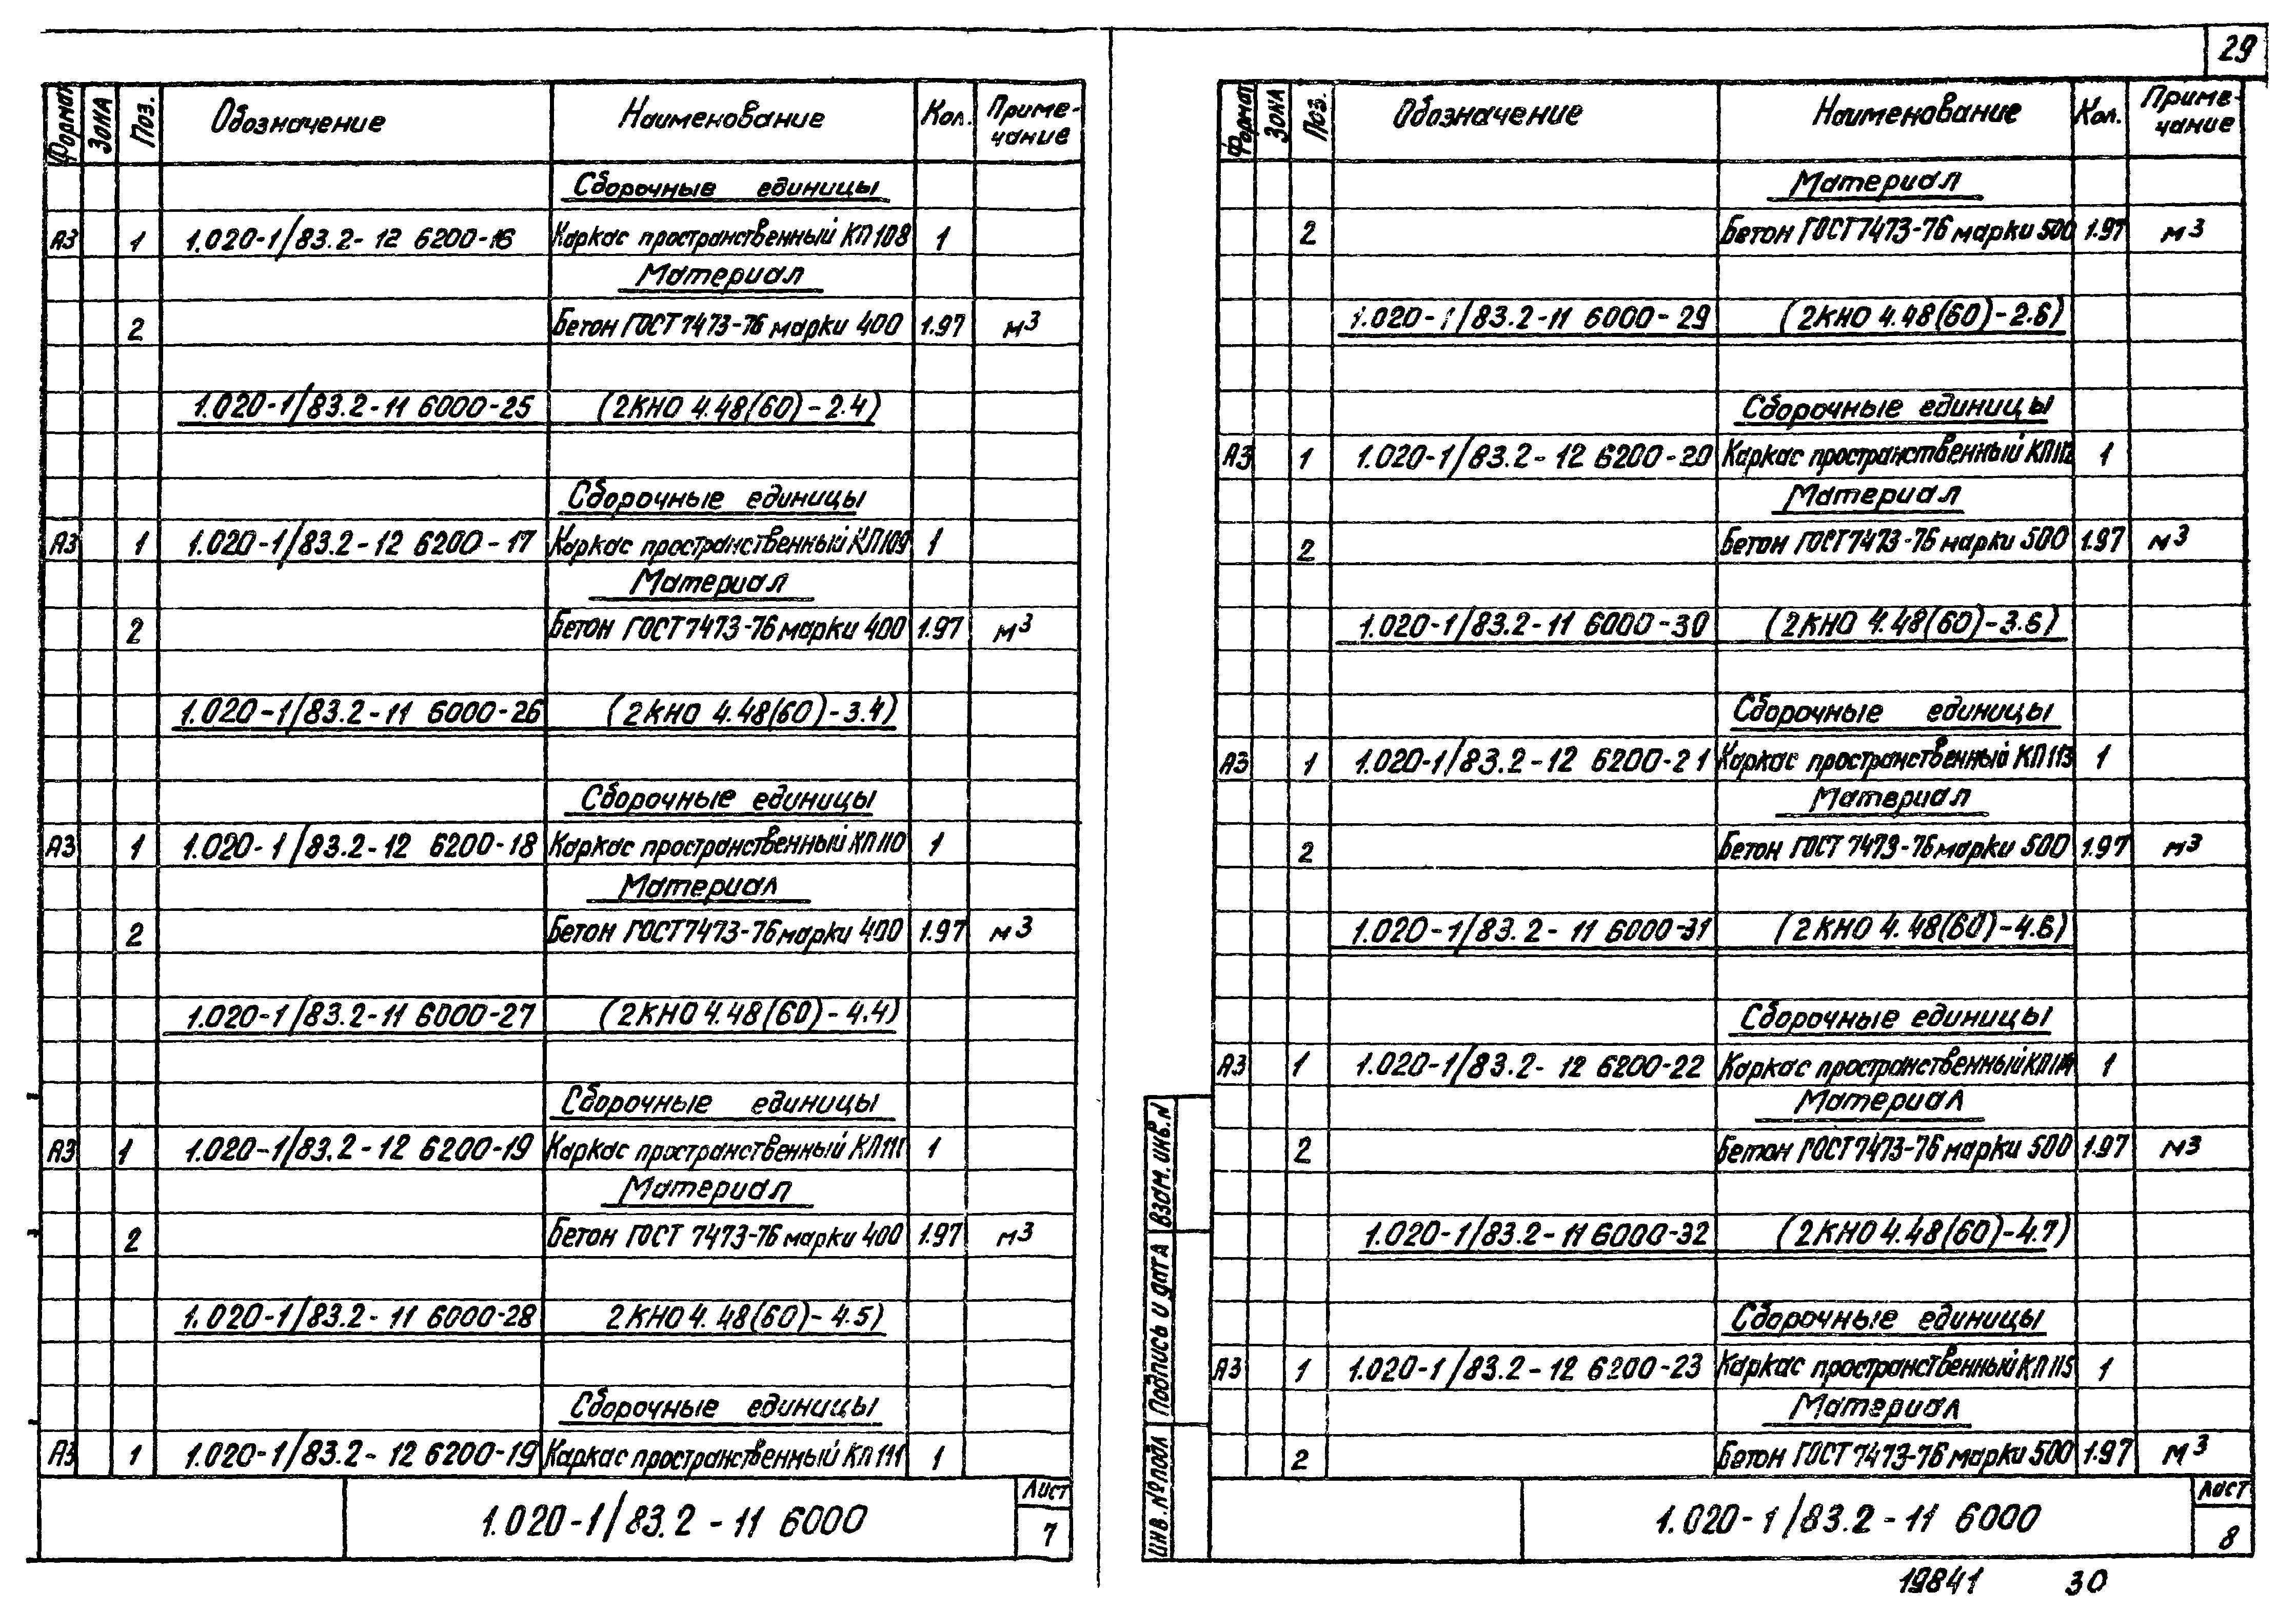 29
Формат Зона Поз. Обозначение Наименование Кол. Приме-
чание
Сборочные единицы
А3 1 1.020-1/83.2-12 6200-16 Каркас пространственный КП108 1
Материал
2 Бетон ГОСТ 7473-76 марки 400 1.97 м3
1.020-1/83.2-11 6000-25 (2КНО 4.48(60)-2.4)
Сборочные единицы
А3 1 1.020-1/83.2-12 6200-17 Каркас пространственный КП109 1
Материал
2 Бетон ГОСТ 7473-76 марки 400 1.97 м3
1.020-1/83.2-11 6000-26 (2КНО 4.48(60)-3.4)
Сборочные единицы
А3 1 1.020-1/83.2-12 6200-18 Каркас пространственный КП110 1
Материал
2 Бетон ГОСТ 7473-76 марки 400 1.97 м3
1.020-1/83.2-11 6000-27 (2КНО 4.48(60)-4.4)
Сборочные единицы
А3 1 1.020-1/83.2-12 6200-19 Каркас пространственный КП111 1
Материал
2 Бетон ГОСТ 7473-76 марки 400 1.97 м3
1.020-1/83.2-11 6000-28 2КНО 4.48(60)-4.5)
Сборочные единицы
А3 1 1.020-1/83.2-12 6200-19 Каркас пространственный КП111 1
1.020-1/83.2-11 6000
Лист
7
Формат Зона Поз. Обозначение Наименование Кол. Приме-
чание
Материал
2 Бетон ГОСТ 7473-76 марки 500 1.97 м3
1.020-1/83.2-11 6000-29 (2КНО 4.48(60)-2.6)
Сборочные единицы
А3 1 1.020-1/83.2-12 6200-20 Каркас пространственный КП112 1
Материал
2 Бетон ГОСТ 7473-76 марки 500 1.97 м3
1.020-1/83.2-11 6000-30 (2КНО 4.48(60)-3.6)
Сборочные единицы
А3 1 1.020-1/83.2-12 6200-21 Каркас пространственный КП113 1
Материал
2 Бетон ГОСТ 7473-76 марки 500 1.97 м3
1.020-1/83.2-11 6000-31 (2КНО 4.48(60)-4.6)
Сборочные единицы
А3 1 1.020-1/83.2-12 6200-22 Каркас пространственный КП114 1
Материал
2 Бетон ГОСТ 7473-76 марки 500 1.97 м3
1.020-1/83.2-11 6000-32 (2КНО 4.48(60)-4.7)
Сборочные единицы
А3 1 1.020-1/83.2-12 6200-23 Каркас пространственный КП115 1
Материал
2 Бетон ГОСТ 7473-76 марки 500 1.97 м3
Инв. № подл Подпись и дата Взам. инв. N
1.020-1/83.2-11 6000
Лист
8
19841 30